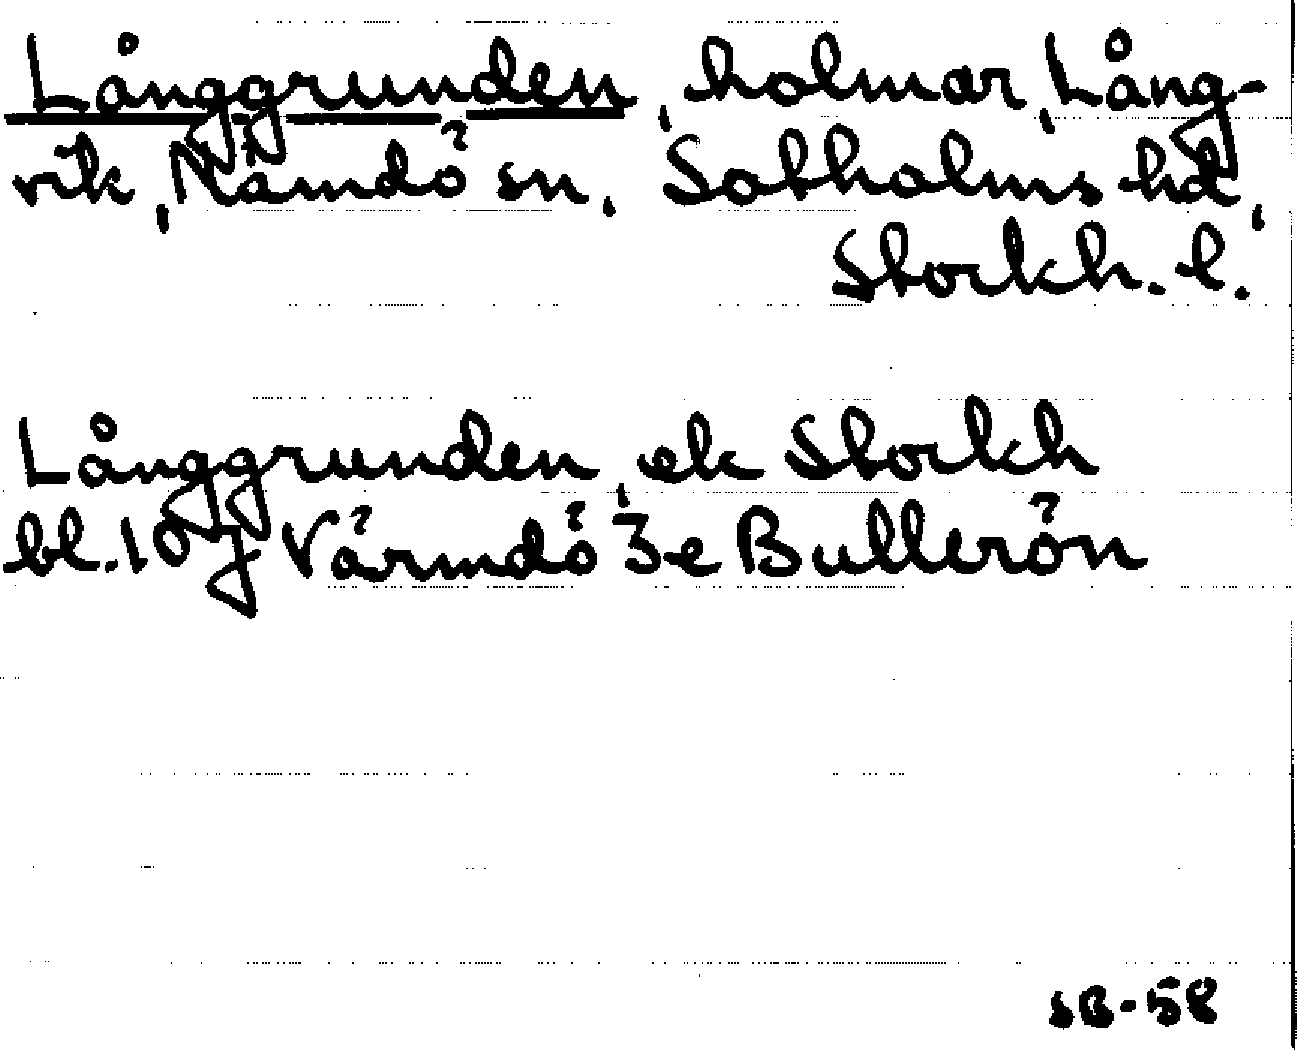 Långgrunden, holmar, Lång-
vik, Nämdö sn, Sotholms hd,
Stockh. l.
Långgrunden, ek Stockh
bl. 107 Värmdö 3e Bullerön
SB-58